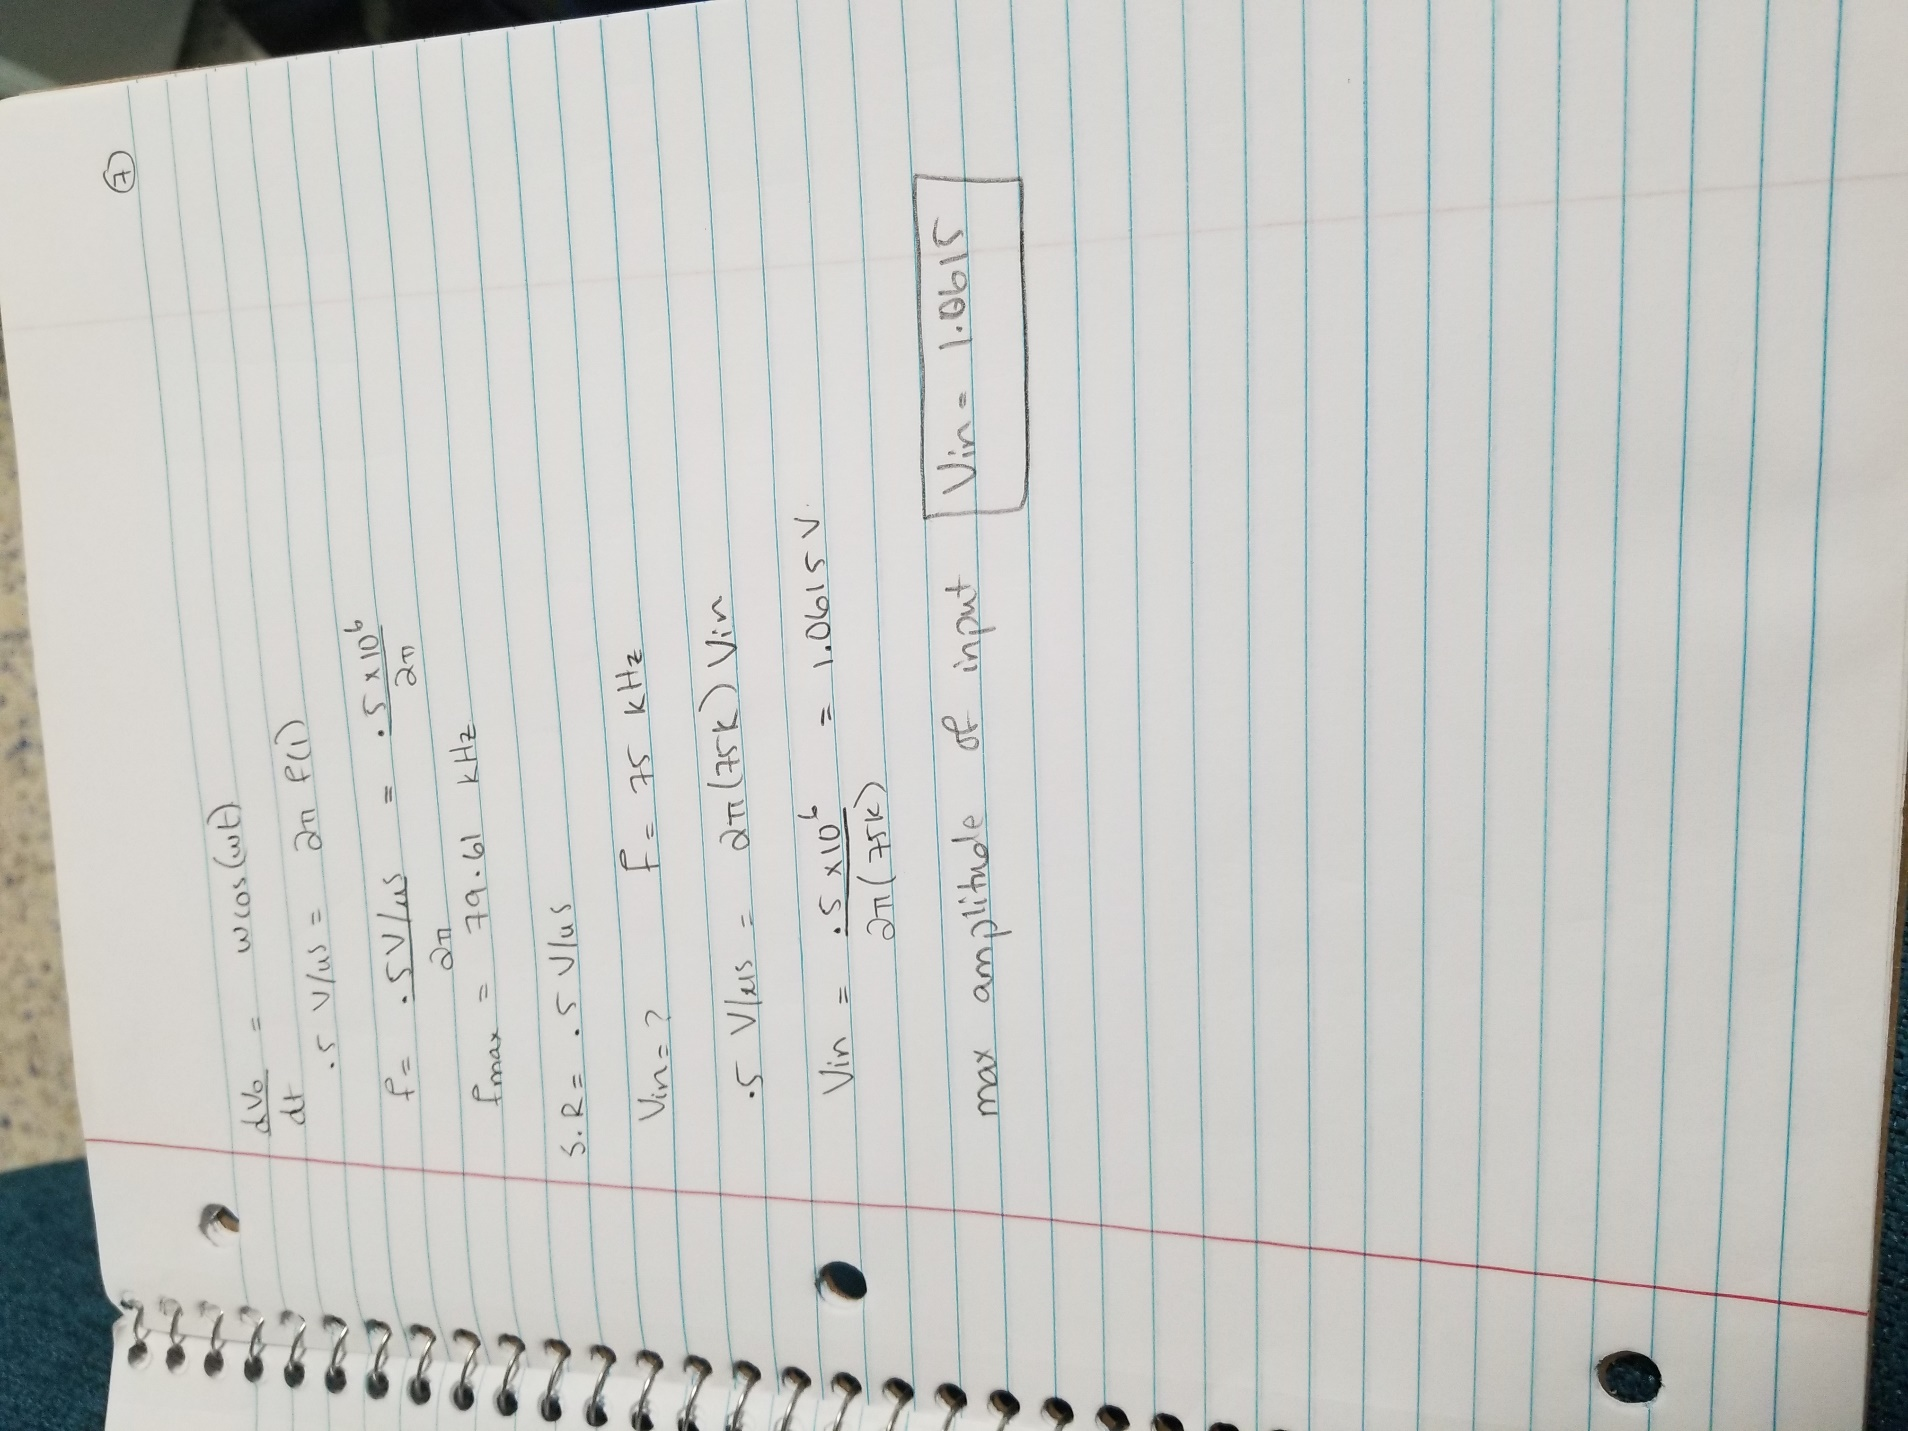 7
dVo/dt = wcos(wt)
.5 V/us = 2π f(1)
f = .5V/us / 2π = .5 x 10^6 / 2π
fmax = 79.61 kHz
S.R = .5 V/us
Vin = ? f = 75 kHz
.5 V/us = 2π(75k) Vin
Vin = .5 x10^6 / 2π(75k) = 1.0615 V.
max amplitude of input Vin = 1.0615